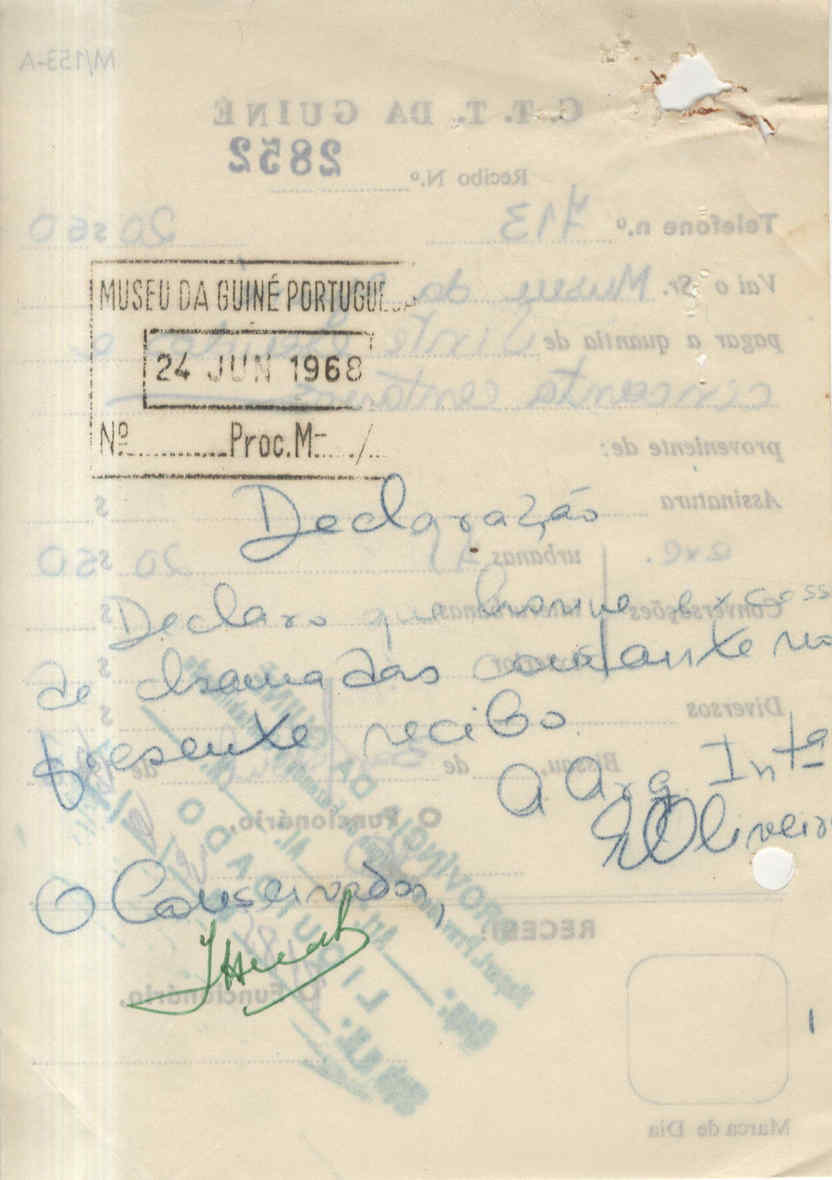 MUSEU DA GUINÉ PORTUGUESA
24 JUN 1968
Nº Proc. M /
Declaração
Declaro que houve excesso
de chamadas constante no
presente recibo.
A Arq. Intª
Oliveira
O Conservador,
M/153-A
C. T. T. DA GUINÉ
Recibo N.º 2852
Telefone n.º 713 20$50
Vai o Sr. Museu da
pagar a quantia de Vinte escudos e
cincoenta centavos
proveniente de:
Assinatura $
exc. urbanas 41 20$50
Conversações interurbanas $
$
Diversos $
Bissau, de de
O Funcionário,
PROVÍNCIA DA GUINÉ
LIQUIDADO
Cap.
RECEBI
O Funcionário,
Marca de Dia